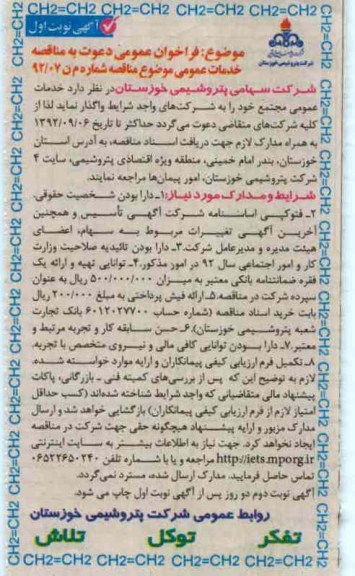 CH2=CH2 CH2=CH2 CH2=CH2 CH2=CH2 CH2=CH2
آگهی نوبت اول
موضوع: فراخوان عمومی دعوت به مناقصه
خدمات عمومی موضوع مناقصه شماره م ن ۹۲/۰۷
شرکت پتروشیمی خوزستان
شرکت سهامی پتروشیمی خوزستان در نظر دارد خدمات
عمومی مجتمع خود را به شرکت‌های واجد شرایط واگذار نماید لذا از
کلیه شرکت‌های متقاضی دعوت می‌گردد حداکثر تا تاریخ ۱۳۹۲/۰۹/۰۶
به همراه مدارک لازم جهت دریافت اسناد مناقصه، به آدرس استان
خوزستان، بندر امام خمینی، منطقه ویژه اقتصادی پتروشیمی، سایت ۴
شرکت پتروشیمی خوزستان، امور پیمان‌ها مراجعه نمایند.
شرایط و مدارک مورد نیاز: ۱ـ دارا بودن شخصیت حقوقی.
۲ـ فتوکپی اساسنامه شرکت آگهی تأسیس و همچنین
آخرین آگهی تغییرات مربوط به سهام، اعضای
هیئت مدیره و مدیرعامل شرکت.۳ـ دارا بودن تائیدیه صلاحیت وزارت
کار و امور اجتماعی سال ۹۲ در امور مذکور.۴ـ توانایی تهیه و ارائه یک
فقره ضمانتنامه بانکی معتبر به میزان ۵۰۰/۰۰۰/۰۰۰ ریال به عنوان
سپرده شرکت در مناقصه.۵ـ ارائه فیش پرداختی به مبلغ ۲۰۰/۰۰۰ ریال
بابت خرید اسناد مناقصه (شماره حساب ۶۰۱۲۰۲۷۷۰۰ بانک تجارت
شعبه پتروشیمی خوزستان).۶ـ حسن سابقه کار و تجربه مرتبط و
معتبر.۷ـ دارا بودن توانایی کافی مالی و نیروی متخصص با تجربه.
۸ـ تکمیل فرم ارزیابی کیفی پیمانکاران و ارایه موارد خواسته شده.
لازم به توضیح این که پس از بررسی‌های کمیته فنی ـ بازرگانی، پاکات
پیشنهاد مالی متقاضیانی که واجد شرایط شناخته شده‌اند (کسب حداقل
امتیاز لازم از فرم ارزیابی کیفی پیمانکاران) بازگشایی خواهد شد و ارسال
مدارک مزبور و ارایه پیشنهاد هیچگونه حقی جهت شرکت در مناقصه
ایجاد نخواهد کرد. جهت نیاز به اطلاعات بیشتر به سایت اینترنتی
http://iets.mporg.ir مراجعه و یا با شماره تلفن ۰۶۵۲۲۶۵۰۲۴۰
تماس حاصل فرمایید. مدارک ارسال شده، مسترد نمی‌گردد.
آگهی نوبت دوم دو روز پس از آگهی نوبت اول چاپ می شود.
روابط عمومی شرکت پتروشیمی خوزستان
تفکر توکل تلاش
CH2=CH2 CH2=CH2 CH2=CH2 CH2=CH2 CH2=CH2